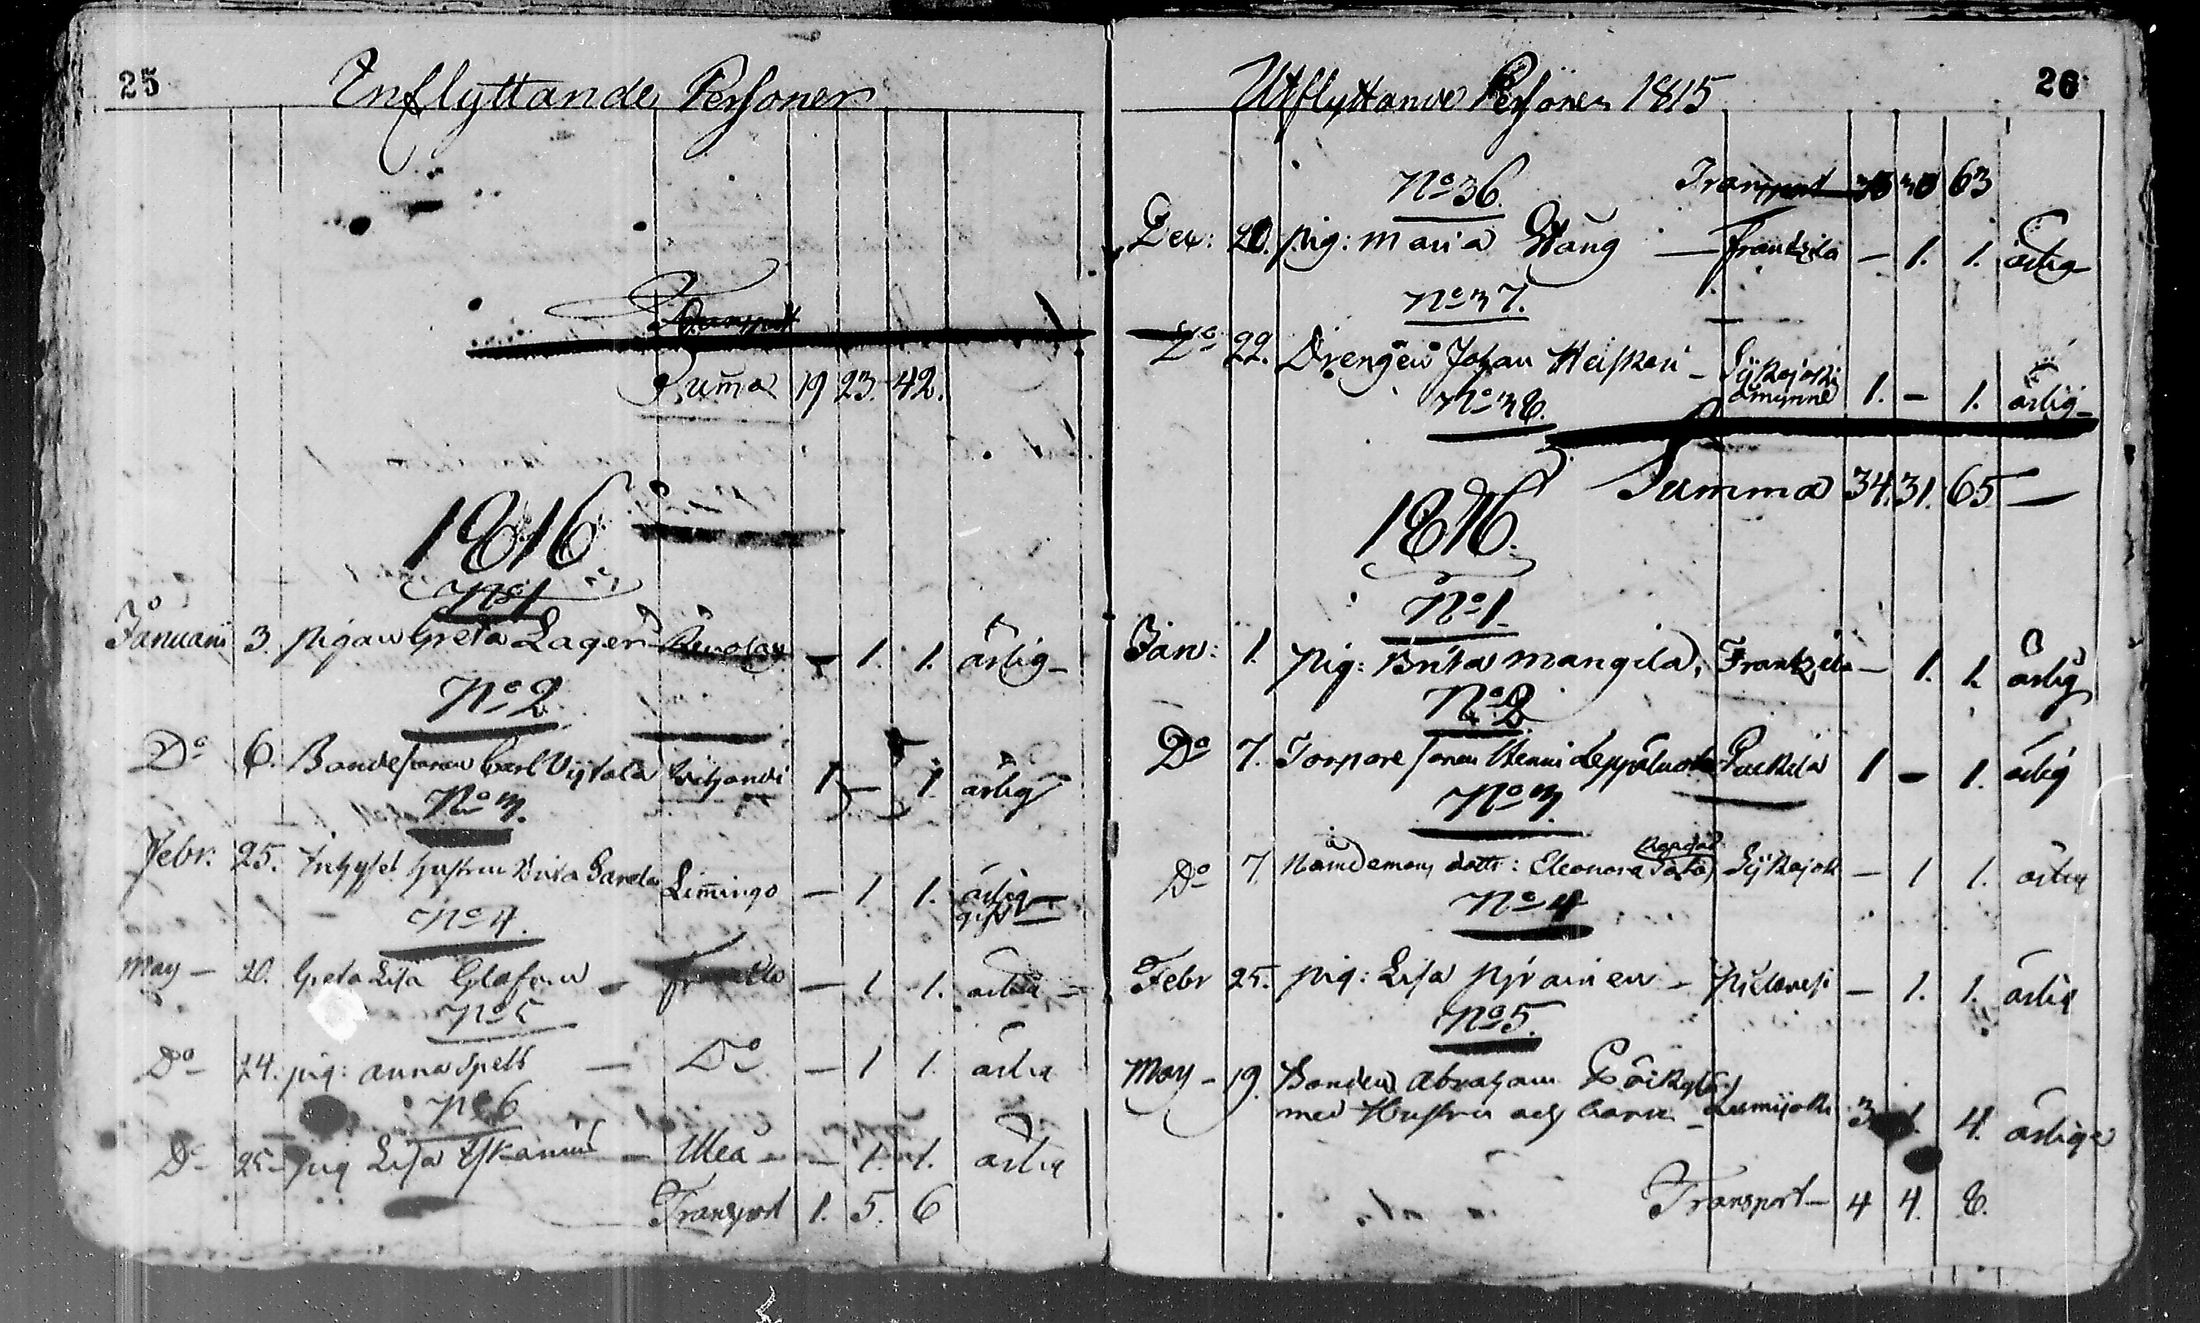 25
Inflyttande Personer
Transport
Suma 19 23. 42.
1816
No 1
Januarii 3. pigan Greta Lager - 1. 1. ärlig
No 2
Do 6. Bondesonen Carl 1 - 1. ärlig
No 3.
Febr. 25. hustrun Brita Limingo - 1 1. ärlig gift
No 4.
May - 20. Greta Lisa - 1 1. ärlig
No 5
Do 24. pig: Anna Spelt - Do - 1 1. ärlig
No 6
Do 25 - pig Lisa - Uleå - 1. 1. ärlig
Transport 1. 5. 6
26
Utflyttande Personer 1815
No 36. Transport 63
Dec: 20. pig: Maria Stång - Frantzila - 1. 1. ärlig
No 37.
Do 22. Drengen Johan Heiskari - Sijkajoki åmynne 1. - 1. ärlig
No 38.
Summa 34. 31. 65 -
1816.
No 1.
Jan: 1. Pig: Brita Mangila, Frantzila - 1. 1. ärlig
No 2
Do 7. Torpare sonen Henric Leppäluoto 1 - 1. ärlig
No 3.
Do 7. Nämdemans dottr: Eleonora Sijkajok - 1 1. ärlig
No 4
Febr 25. pig: Lisa - 1. 1. ärlig
No 5.
May - 19. Bonden Abraham
med Hustru och barn - Lumijoki 3 1. 4. ärliga
Transport - 4 4. 8.